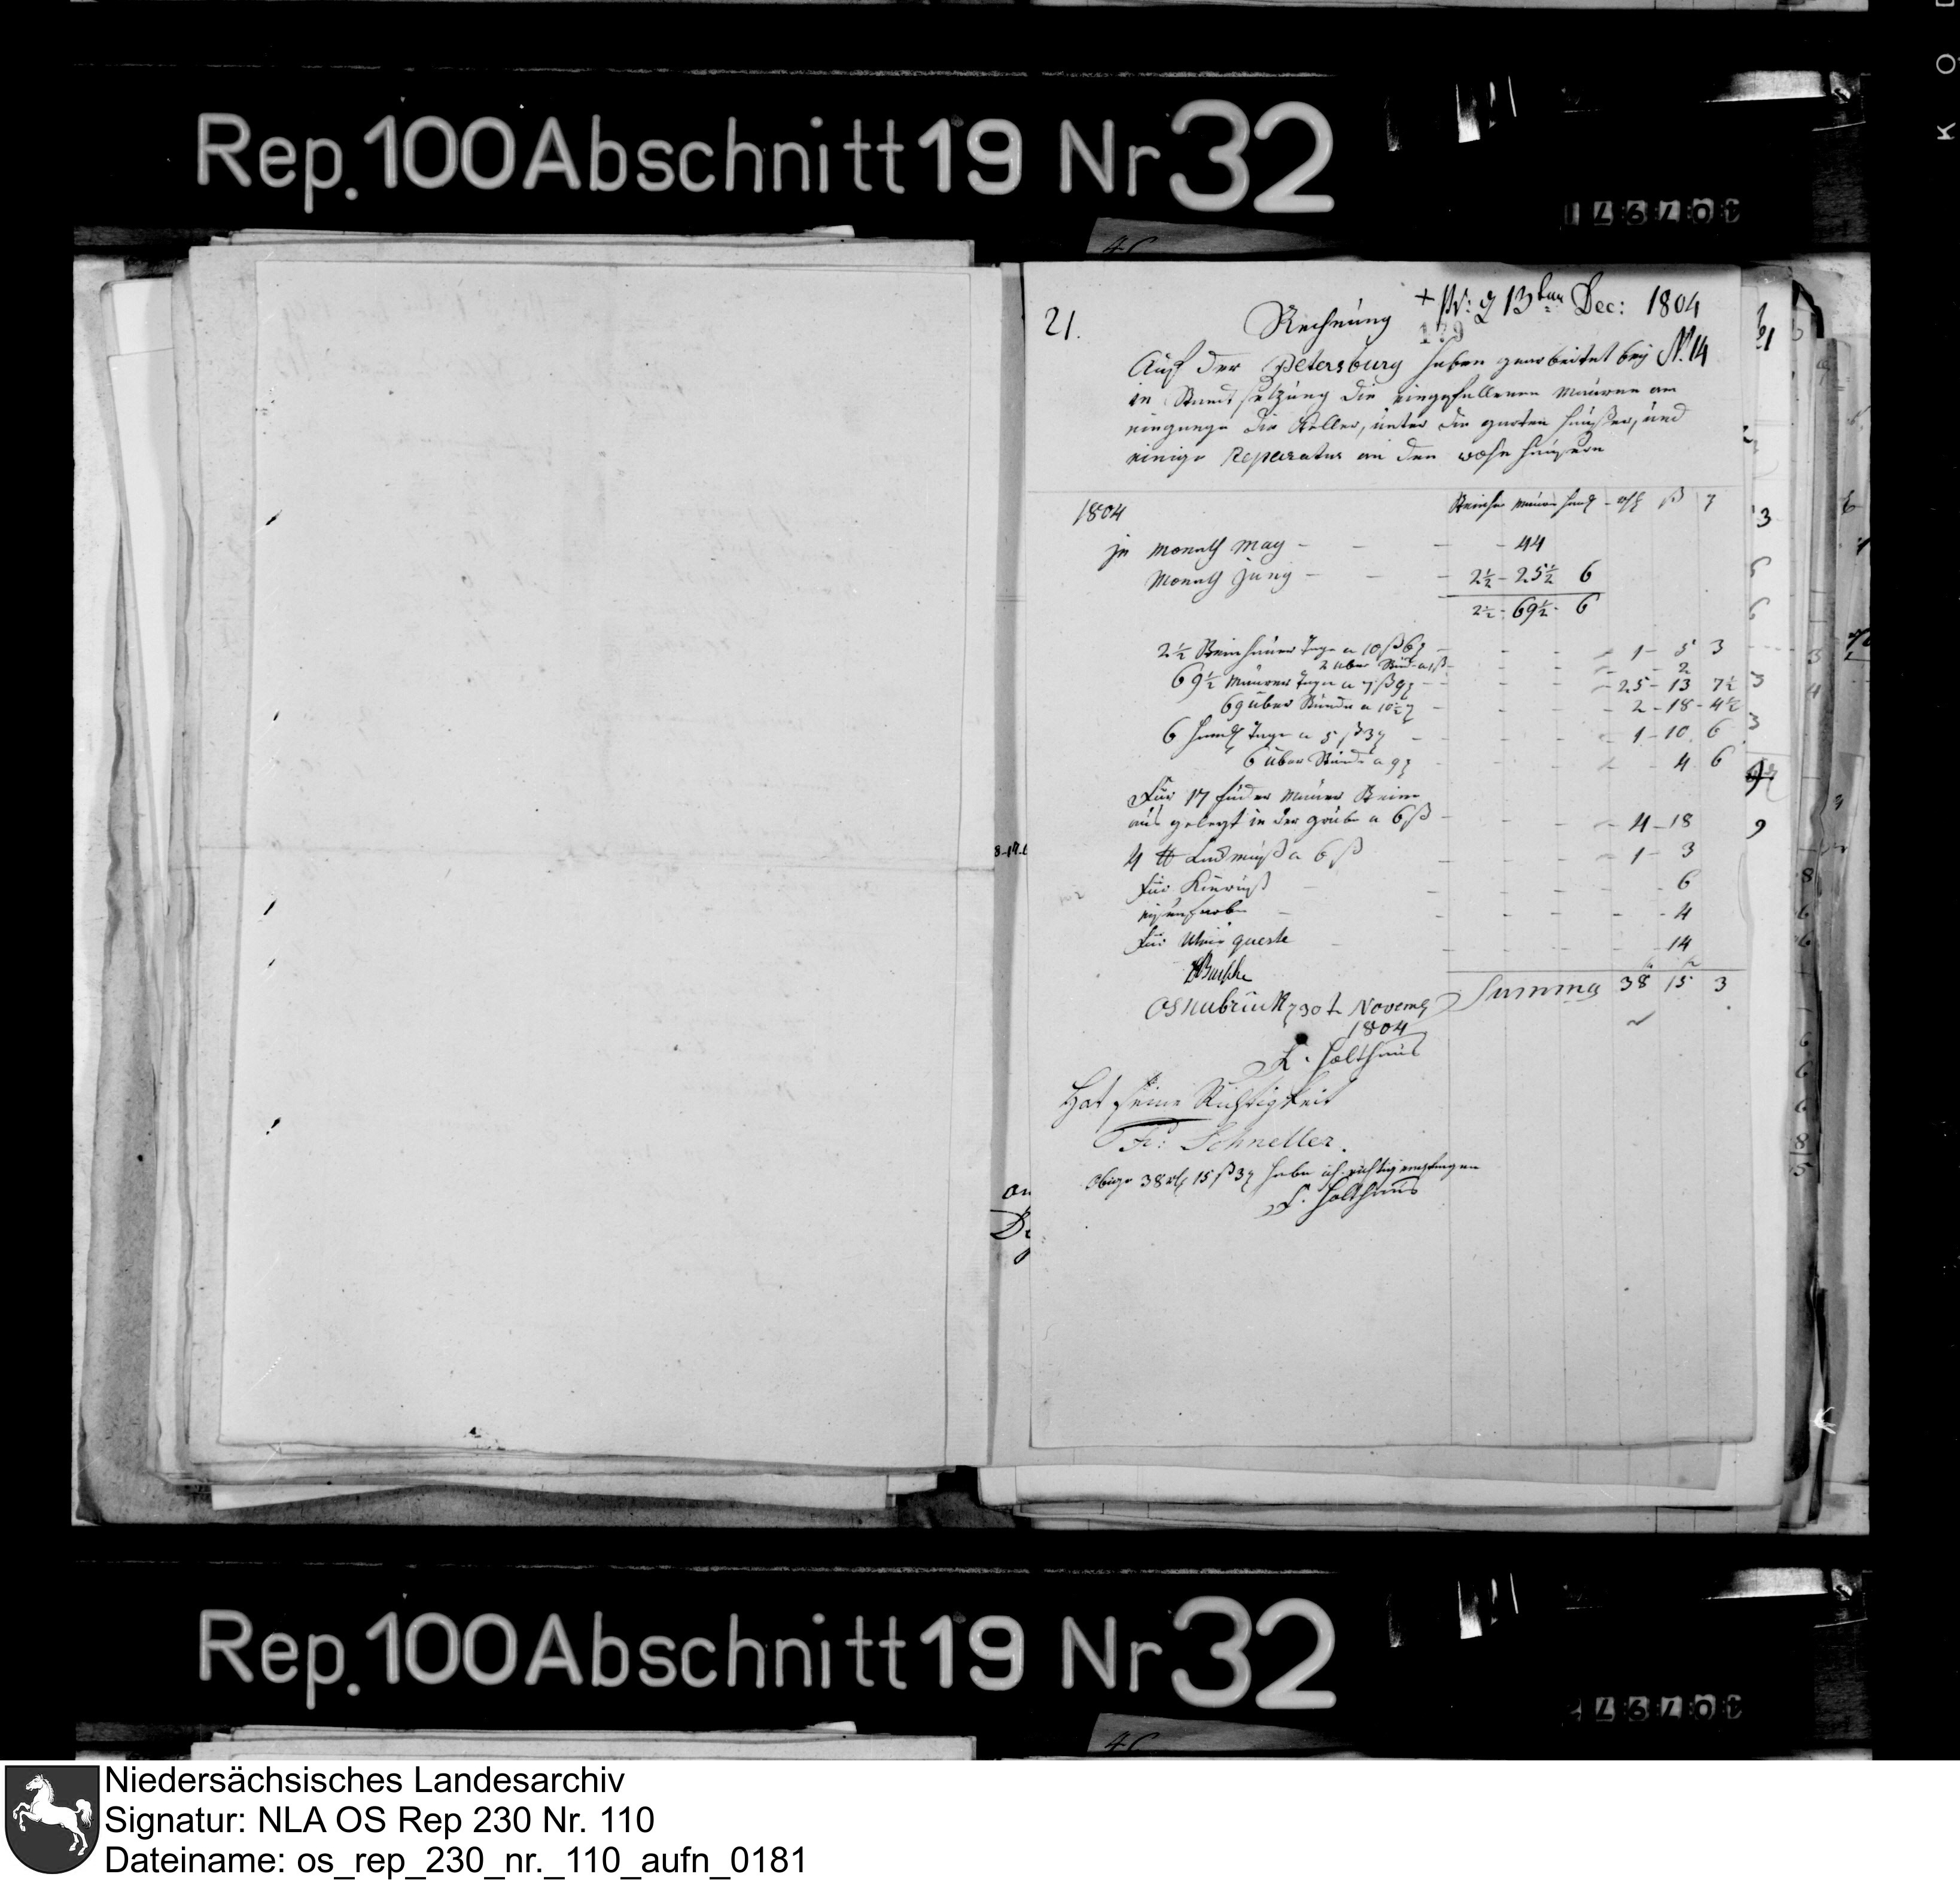 Rep. 100 Abschnitt 19 Nr 32
21.
Rechnung
+ Pr: d 13ten Dec: 1804
179
Auf der Petersburg haben gearbeitet bey N. 14
in Standsetzung die eingefallenen Mauren am
eingange die Keller, unter die garten häußer, und
einige Reparatur an den wohn häusern
1804
Steinh Maur handl rthl ß d
in Monath May - - - - 44
Monath Juny - - - 2½ - 25½ 6
2½ - 69½ - 6
2½ Steinhauer Tage a 10 ß 6 d - - - 1 - 5 3
2 über Stund a 1 ß - - - 2
69½ Maurer Tage a 7 ß 9 d - - - 25 - 13 7½
69 über Stunde a 10½ d - - - 2 - 18 - 4½
6 handl Tage a 5 ß 3 d - - - 1 - 10 6
6 über Stunde a 9 d - - - 4 6
Für 17 fuder Mauer Steine
aus gelegt in der grube a 6 ß - - - 4 - 18
4 ℔ a 6 ß - - - 1 - 3
Für - - - 6
- - - 4
Für queste - - - 14
Buſche
Osnabrück d 30t Novemb
1804
Summa 38 15 3
F. Holthaus
Hat seine Richtigkeit
Fr: Schneller.
Obige 38 rthl 15 ß 3 d habe ich richtig empfangen
F. Holthaus
Rep. 100 Abschnitt 19 Nr 32
Niedersächsisches Landesarchiv
Signatur: NLA OS Rep 230 Nr. 110
Dateiname: os_rep_230_nr._110_aufn_0181